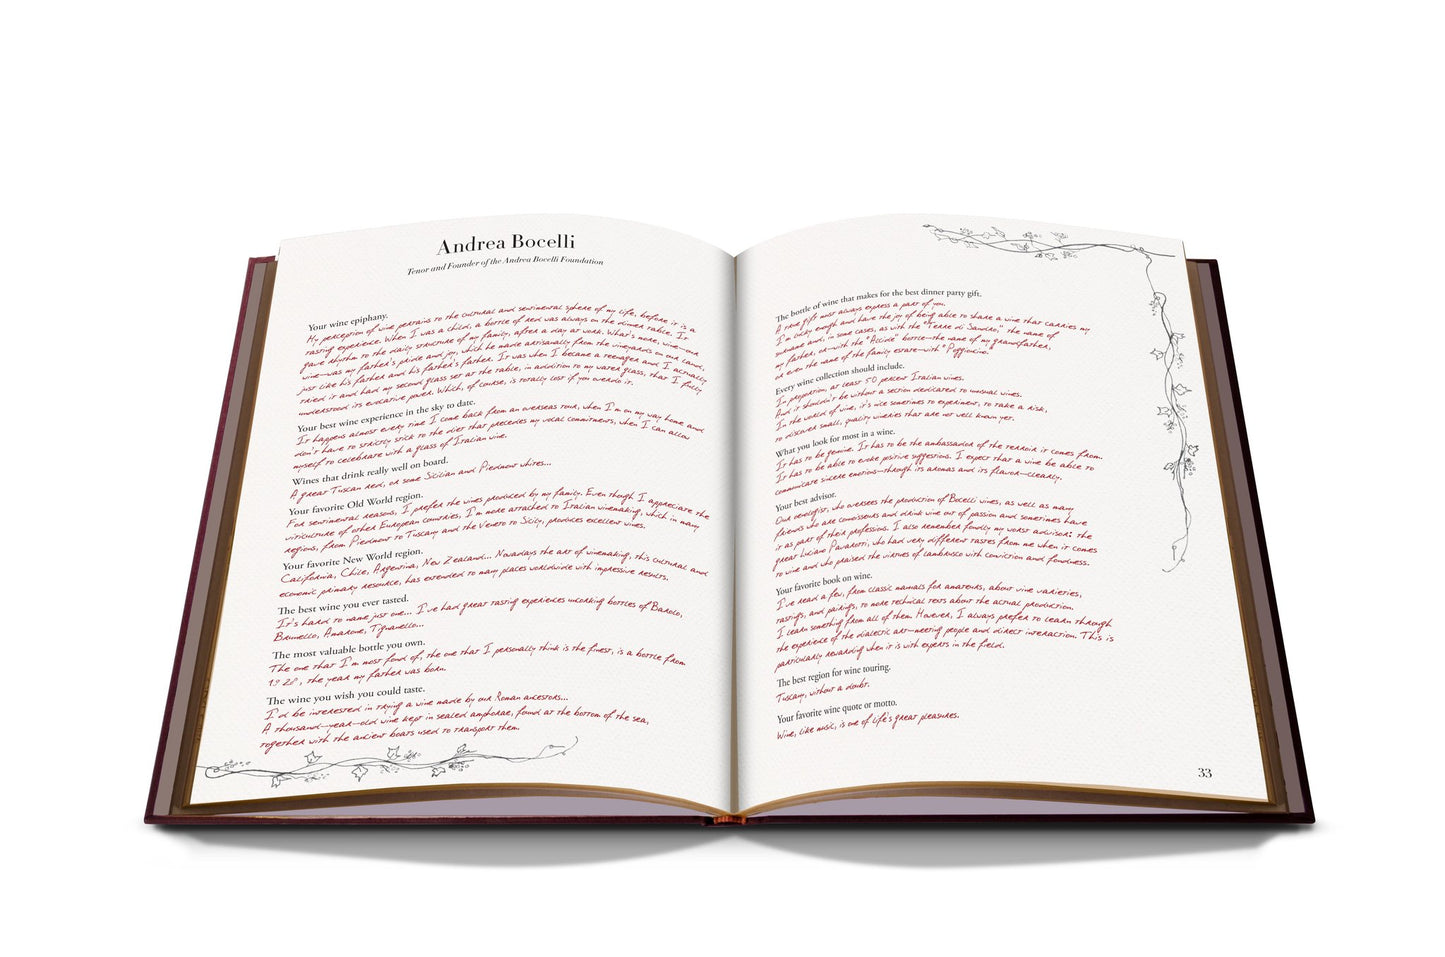 Andrea Bocelli
Tenor and Founder of the Andrea Bocelli Foundation
Your wine epiphany.
My perception of wine pertains to the cultural and sentimental sphere of my life, before it is a
tasting experience. When I was a child, a bottle of red was always on the dinner table. It
gave rhythm to the daily structure of my family, after a day at work. What's more, wine—our
wine—was my father's pride and joy, which he made artisanally from the vineyards on our land,
just like his father and his father's father. It was when I became a teenager and I actually
tried it and had my second glass set at the table, in addition to my water glass, that I fully
understood its evocative power. Which, of course, is totally lost if you overdo it.
Your best wine experience in the sky to date.
It happens almost every time I come back from an overseas tour, when I'm on my way home and
don't have to strictly stick to the diet that precedes my vocal commitments, when I can allow
myself to celebrate with a glass of Italian wine.
Wines that drink really well on board.
A great Tuscan red, or some Sicilian and Piedmont whites...
Your favorite Old World region.
For sentimental reasons, I prefer the wines produced by my family. Even though I appreciate the
viticulture of other European countries, I'm more attached to Italian winemaking, which in many
regions, from Piedmont to Tuscany and the Veneto to Sicily, produces excellent wines.
Your favorite New World region.
California, Chile, Argentina, New Zealand... Nowadays the art of winemaking, this cultural and
economic primary resource, has extended to many places worldwide with impressive results.
The best wine you ever tasted.
It's hard to name just one... I've had great tasting experiences uncorking bottles of Barolo,
Brunello, Amarone, Tignanello...
The most valuable bottle you own.
The one that I'm most fond of, the one that I personally think is the finest, is a bottle from
1928, the year my father was born.
The wine you wish you could taste.
I'd be interested in trying a wine made by our Roman ancestors...
A thousand-year-old wine kept in sealed amphorae, found at the bottom of the sea,
together with the ancient boats used to transport them.
The bottle of wine that makes for the best dinner party gift.
A true gift must always express a part of you.
I'm lucky enough and have the joy of being able to share a wine that carries my
surname and, in some cases, as with the "Terre di Sandro," the name of
my father, or—with the "Alcide" bottle—the name of my grandfather,
or even the name of the family estate—with "Poggioncino."
Every wine collection should include.
In proportion, at least 50 percent Italian wines.
And it shouldn't be without a section dedicated to unusual wines.
In the world of wine, it's nice sometimes to experiment, to take a risk,
to discover small, quality wineries that are not well known yet.
What you look for most in a wine.
It has to be genuine. It has to be the ambassador of the terroir it comes from.
It has to be able to evoke positive suggestions. I expect that a wine be able to
communicate sincere emotions—through its aromas and its flavor—clearly.
Your best advisor.
Our oenologist, who oversees the production of Bocelli wines, as well as many
friends who are connoisseurs and drink wine out of passion and sometimes have
it as part of their professions. I also remember fondly my worst advisor: the
great Luciano Pavarotti, who had very different tastes from me when it comes
to wine and who praised the virtues of lambrusco with conviction and fondness.
Your favorite book on wine.
I've read a few, from classic manuals for amateurs, about wine varieties,
tastings, and pairings, to more technical texts about the actual production.
I learn something from all of them. However, I always prefer to learn through
the experience of the dialectic art—meeting people and direct interaction. This is
particularly rewarding when it is with experts in the field.
The best region for wine touring.
Tuscany, without a doubt.
Your favorite wine quote or motto.
Wine, like music, is one of life's great pleasures.
33